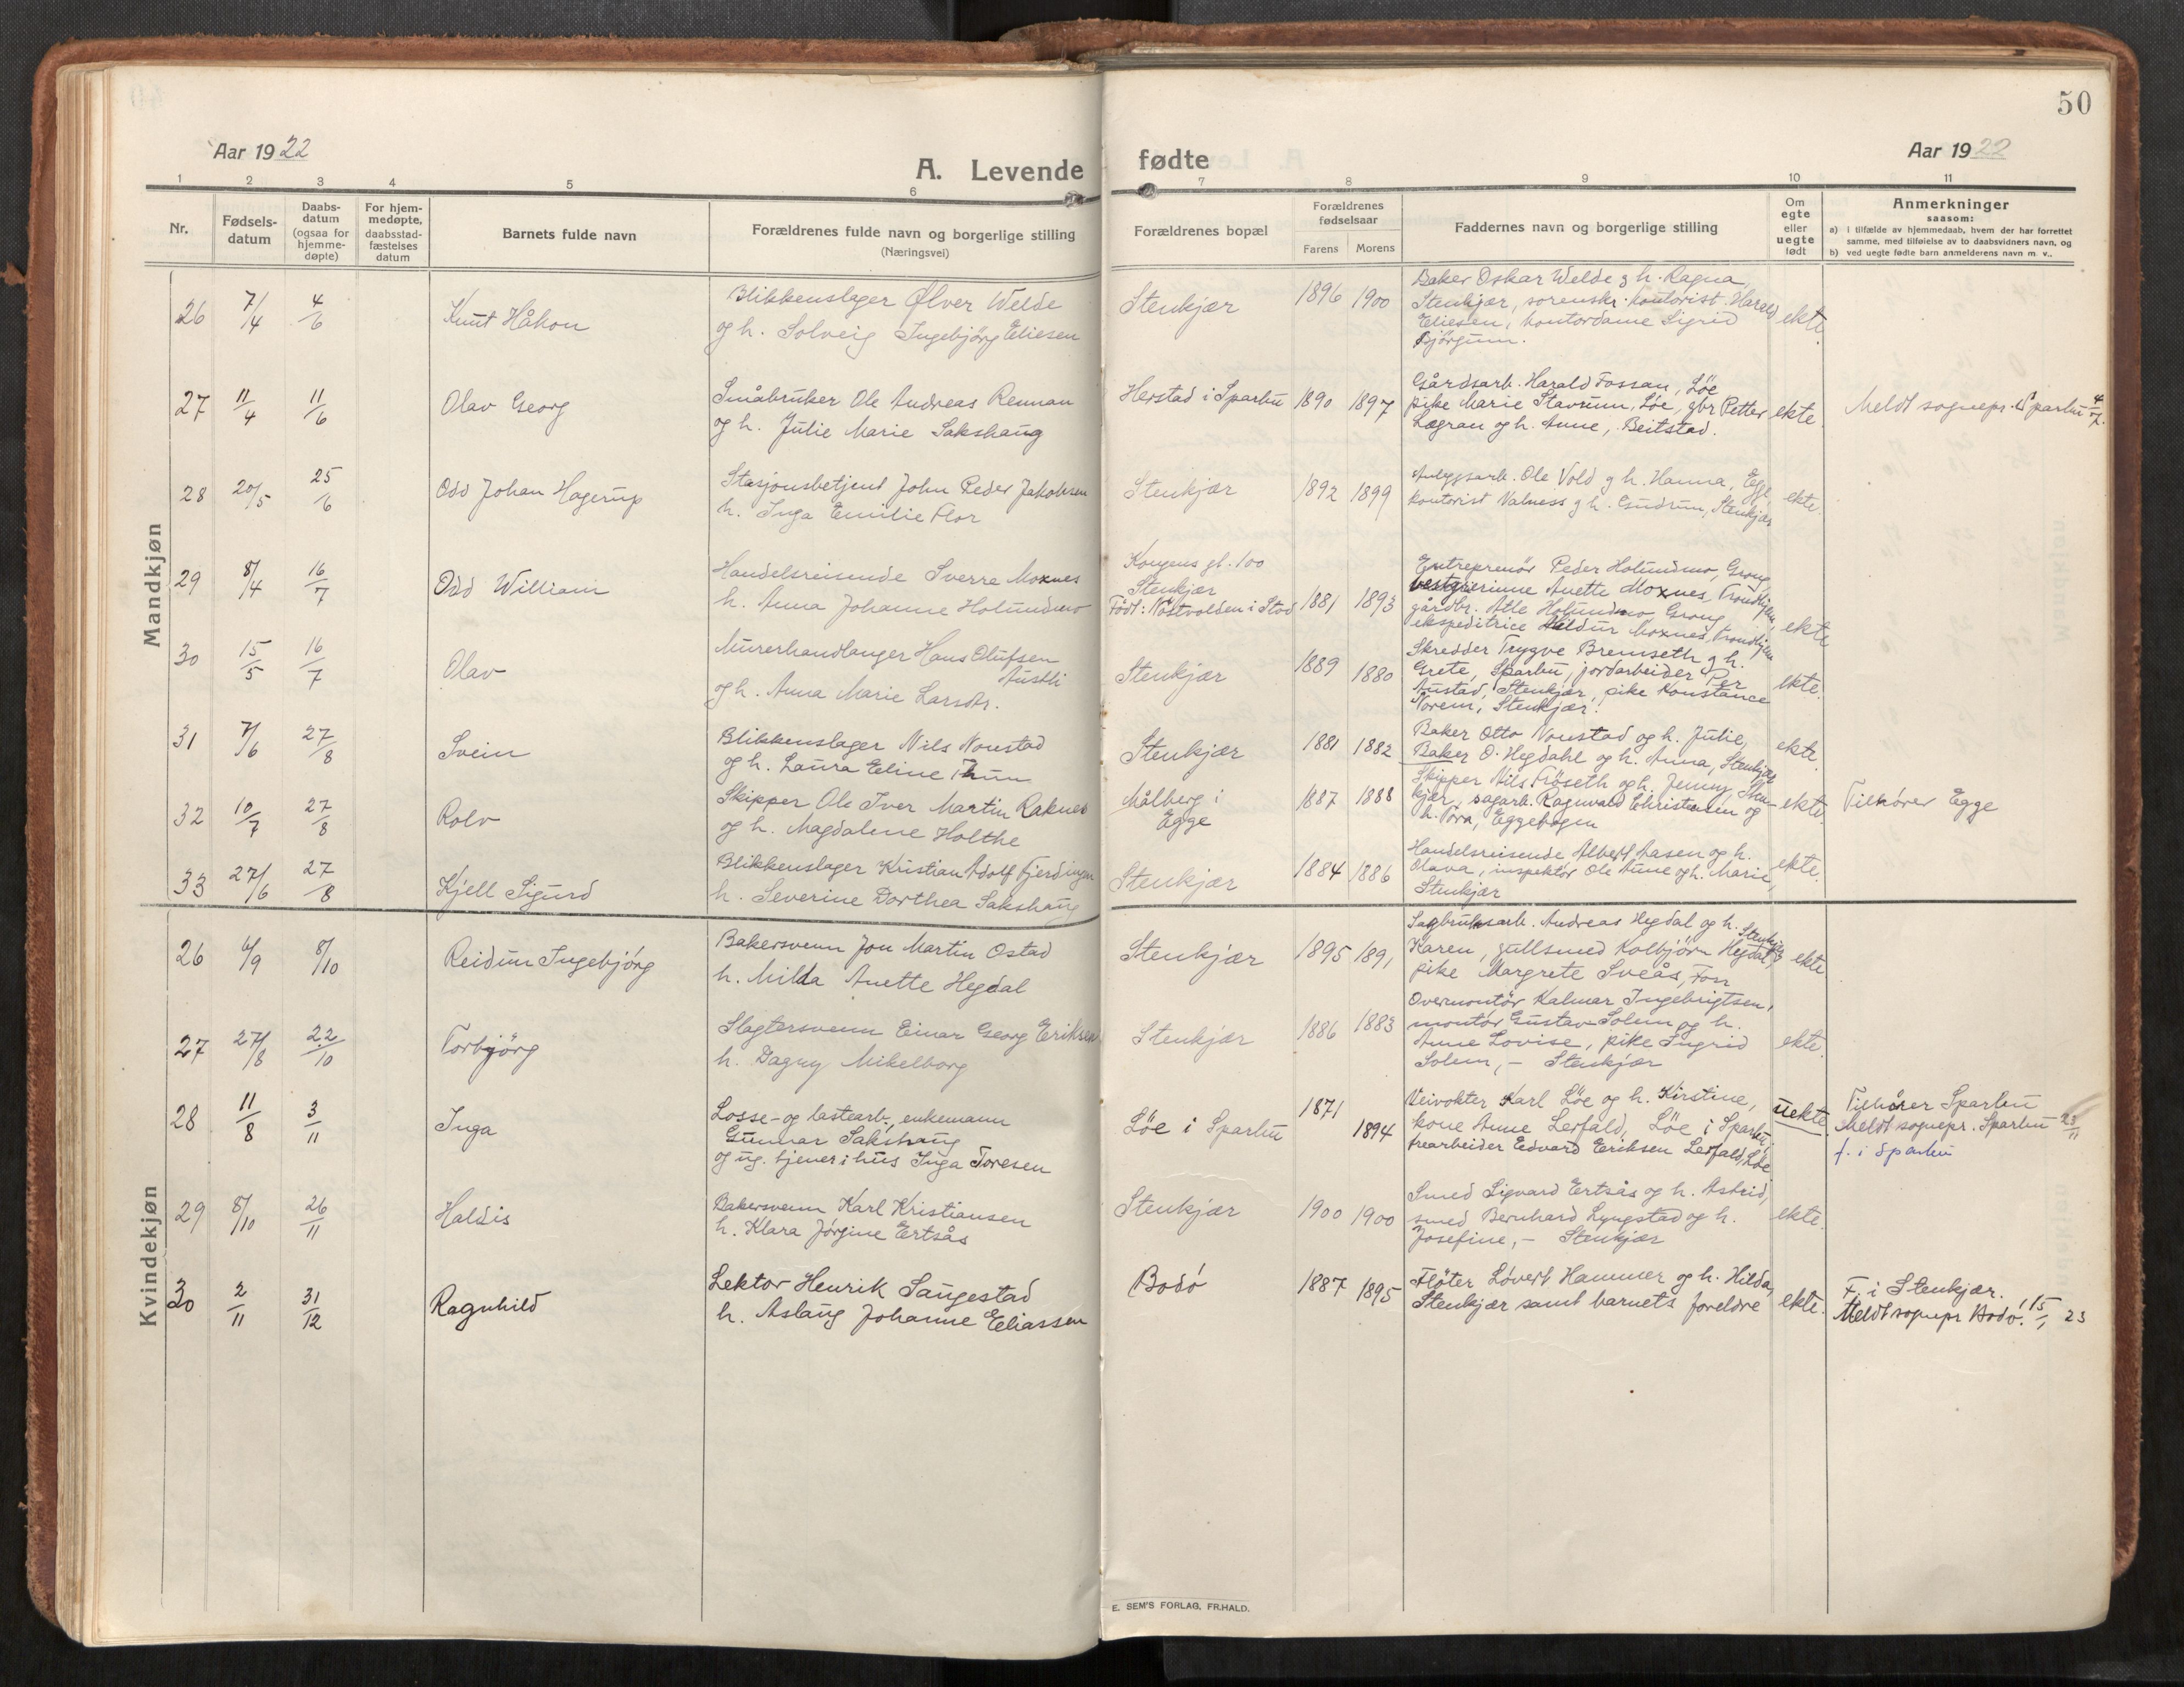 50
Aar 1922
A. Levende fødte
Aar 1922
1 2 3 4 5 6 7 8 9 10 11
Nr.
Fødsels-
datum
Daabs-
datum
(ogsaa for
hjemme-
døpte)
For hjem-
medøpte,
daabsstad-
fæstelses
datum
Barnets fulde navn
Forældrenes fulde navn og borgerlige stilling
(Næringsvei)
Forældrenes bopæl
Forældrenes
fødselsaar
Farens Morens
Faddernes navn og borgerlige stilling
Om
egte
eller
uegte
født
Anmerkninger
saasom:
a) i tilfælde av hjemmedaab, hvem der har forrettet
samme, med tilføielse av to daabsvidners navn, og
b) ved uegte fødte barn anmelderens navn m. v..
Mandkjøn
26 7/4 4/6 Knut Håkon
Blikkenslager Ølver Welde
og h. Solveig Ingebjørg Eliesen
Stenkjær 1896 1900
Baker Oskar Welde g h. Ragna,
Stenkjær, sorenskr. kontorist Harald
Eliesen, kontordame Sigrid
Bjørgum.
ekte
27 11/4 11/6 Olav Georg
Småbruker Ole Andreas Rennan
og h. Julie Marie Sakshaug
Herstad i Sparbu 1890 1897
Gårdsarb. Harald Fossan, Løe
pike Marie Stavrum, Løe, gbr Petter
Lægran og h. Anne, Beitstad.
ekte
Meldt sognepr. i Sparbu 4/7.
28 20/5 25/6 Odd Johan Hagerup
Stasjonsbetjent John Peder Jakobsen
h. Inga Emilie Flor
Stenkjær 1892 1899
Anleggsarb. Ole Vold g h. Hanna, Egge
kontorist Valness g h. Gudrun, Stenkjær
ekte.
29 8/4 16/7 Odd William
Handelsreisende Sverre Moxnes
h. Anna Johanne Holundmo
Kongens gt. 100
Stenkjær
Født: Nøstvolden i Stod
1881 1893
Entreprenør Peder Holundmo, Grong
bestyrerinne Anette Moxnes, Trondhjem,
gårdbr. Atle Holundmo Grong
ekspeditrice Hildur Moxnes, Trondhjem
ekte
30 15/5 16/7 Olav
Murerhandlanger Hans Olufsen
Austli
og h. Anna Marie Larsdtr.
Stenkjær 1889 1880
Skredder Trygve Bremseth g h.
Grete, Sparbu, jordarbeider Per
Austad, Stenkjær, pike Konstance
Norem, Stenkjær.
ekte.
31 7/6 27/8 Svein
Blikkenslager Nils Noustad
og h. Laura Eline Thun
Stenkjær 1881 1882
Baker Otto Noustad og h. Julie,
Baker O. Hegdahl og h. Anna, Stenkjær
ekte.
32 10/7 27/8 Rolv
Skipper Ole Iver Martin Raknes
og h. Magdalene Holthe
Målberg i
Egge
1887 1888
Skipper Nils Frøseth og h. Jenny, Sten-
kjær, sagarb. Ragnvald Christensen og
h. Tora, Eggebogen
ekte.
Tilhører Egge
33 27/6 27/8 Kjell Sigurd
Blikkenslager Kristian Adolf Fjerdingen
h. Severine Dorthea Sakshaug
Stenkjær 1884 1886
Handelsreisende Albert Aasen og h.
Olava, inspektør Ole Aune og h. Marie,
Stenkjær
ekte.
Kvindekjøn
26 6/9 8/10 Reidun Ingebjørg
Bakersvenn Jon Martin Ostad
h. Milda Anette Hegdal
Stenkjær 1895 1891
Sagbruksarb. Andreas Hegdal og h. Stenkjær
Karen, gullsmed Kolbjørn Hegdal,
pike Margrete Sveås, Foss
ekte
27 27/8 22/10 Torbjörg
Slagtersvenn Einar Georg Eriksen
h. Dagny Mikelborg
Stenkjær 1886 1883
Overmontör Kalmar Ingebrigtsen,
montør Gustav Solem og h.
Anne Lovise, pike Ingrid
Solem, - Stenkjær
ekte.
28 11/8 3/11 Inga
Losse- og lastearb., enkemann
Gunnar Sakshaug
og ug. tjener i hus Inga Toresen
Løe i Sparbu 1871 1894
Veivokter Karl Løe og h. Kirstine,
kone Anne Lerfald, Løe i Sparbu,
trearbeider Edvard Eriksen Lerfald, Løe
uekte.
Tilhører Sparbu
Meldt sognepr. Sparbu 23/11
f. i Sparbu
29 8/10 26/11 Haldis
Bakersvenn Karl Kristiansen
h. Klara Jørgine Ertsås
Stenkjær 1900 1900
Smed Sigvard Ertsås og h. Astrid,
smed Bernhard Lyngstad og h.
Josefine, - Stenkjær
ekte.
30 2/11 31/12 Ragnhild
Lektor Henrik Saugestad
h. Aslaug Johanne Eliassen
Bodö 1887 1895
Fløter Løvert Hammer og h. Hilda,
Stenkjær samt barnets foreldre
ekte.
F. i Stenkjær.
Meldt sognepr Bodö. 15/1 23
E. SEM'S FORLAG, FR.HALD.